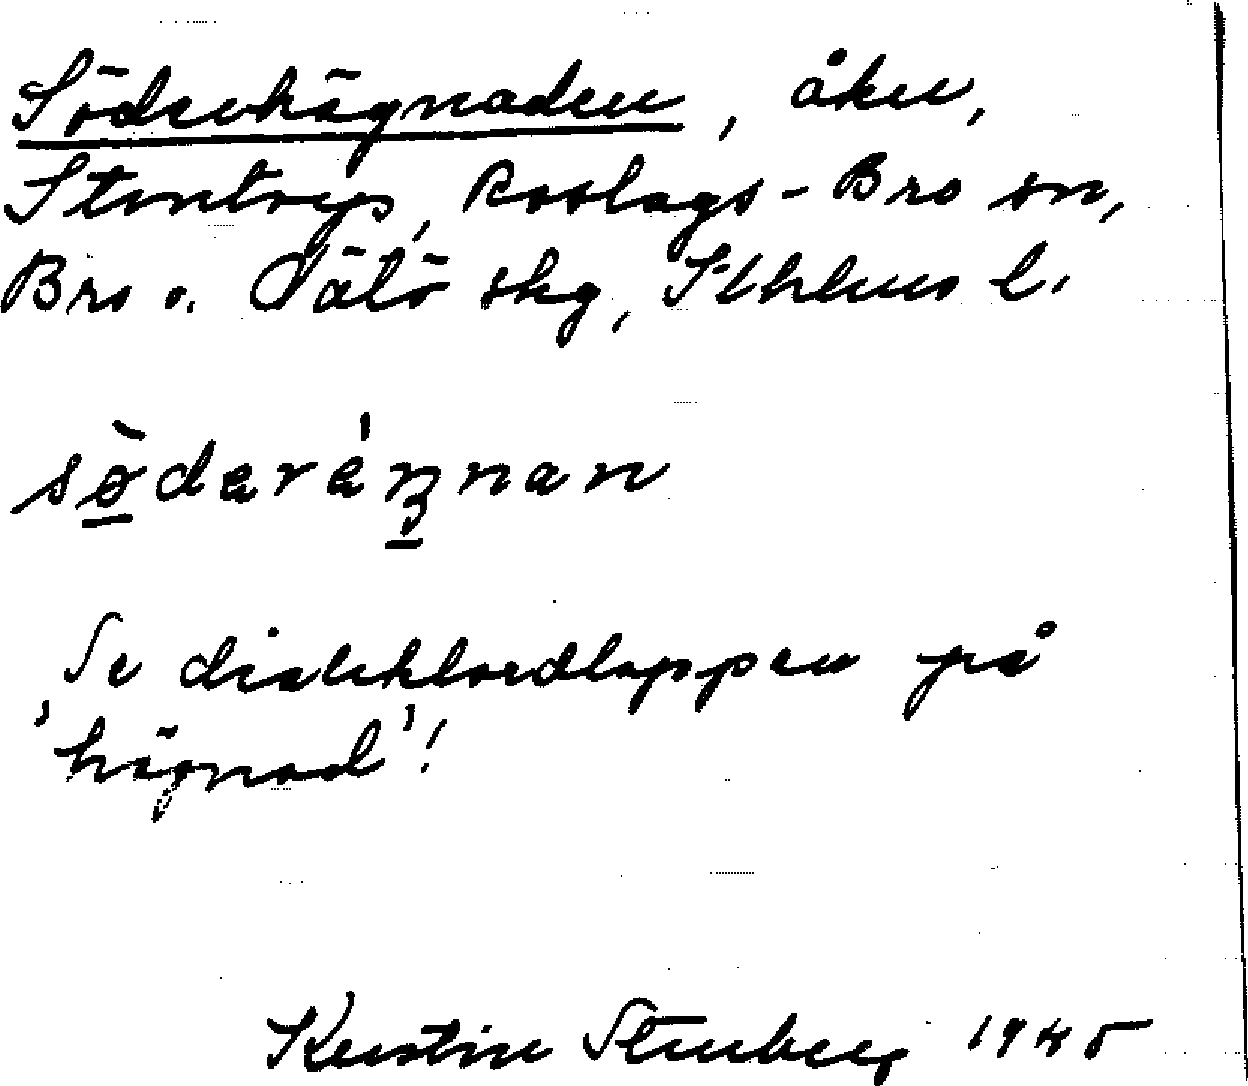 Söderhägnaden, åker,
Stentorp, Roslags-Bro sn,
Bro o. Vätö skg, Sthlms l.
södaräŋnan
Se dialektordlappen på
'hägnad'!
Kerstin Stenberg 1945